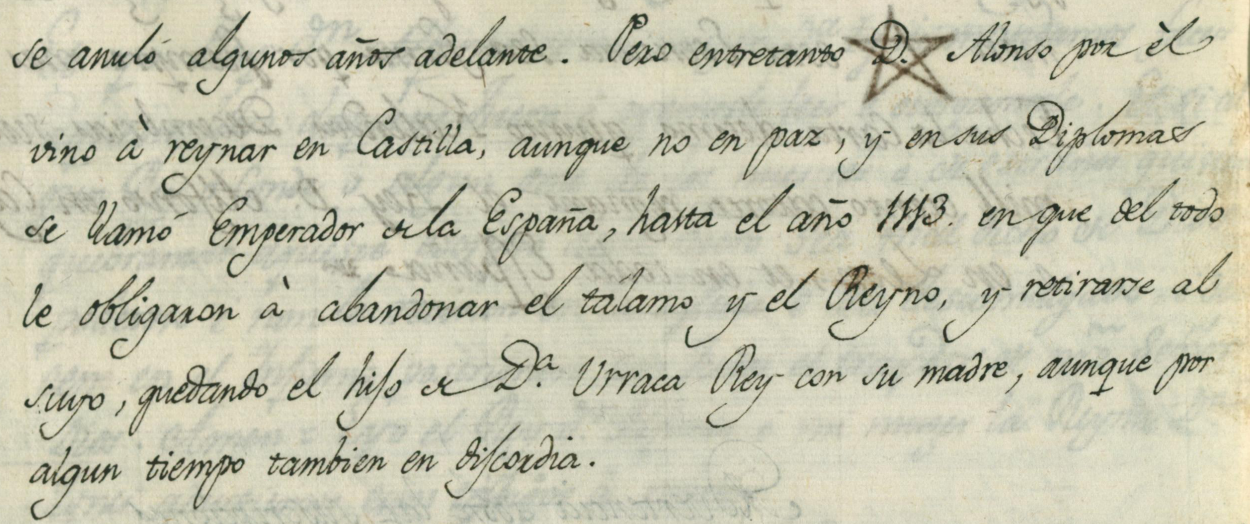 se anuló algunos años adelante. Pero entretanto D. Alonso por èl
vino à reynar en Castilla, aunque no en paz, y en sus Diplomas
se llamó Emperador de la España, hasta el año 1113. en que del todo
le obligaron à abandonar el tálamo y el Reyno, y retirarse al
suyo, quedando el hijo de D.ª Urraca Rey con su madre, aunque por
algun tiempo tambien en discordia.